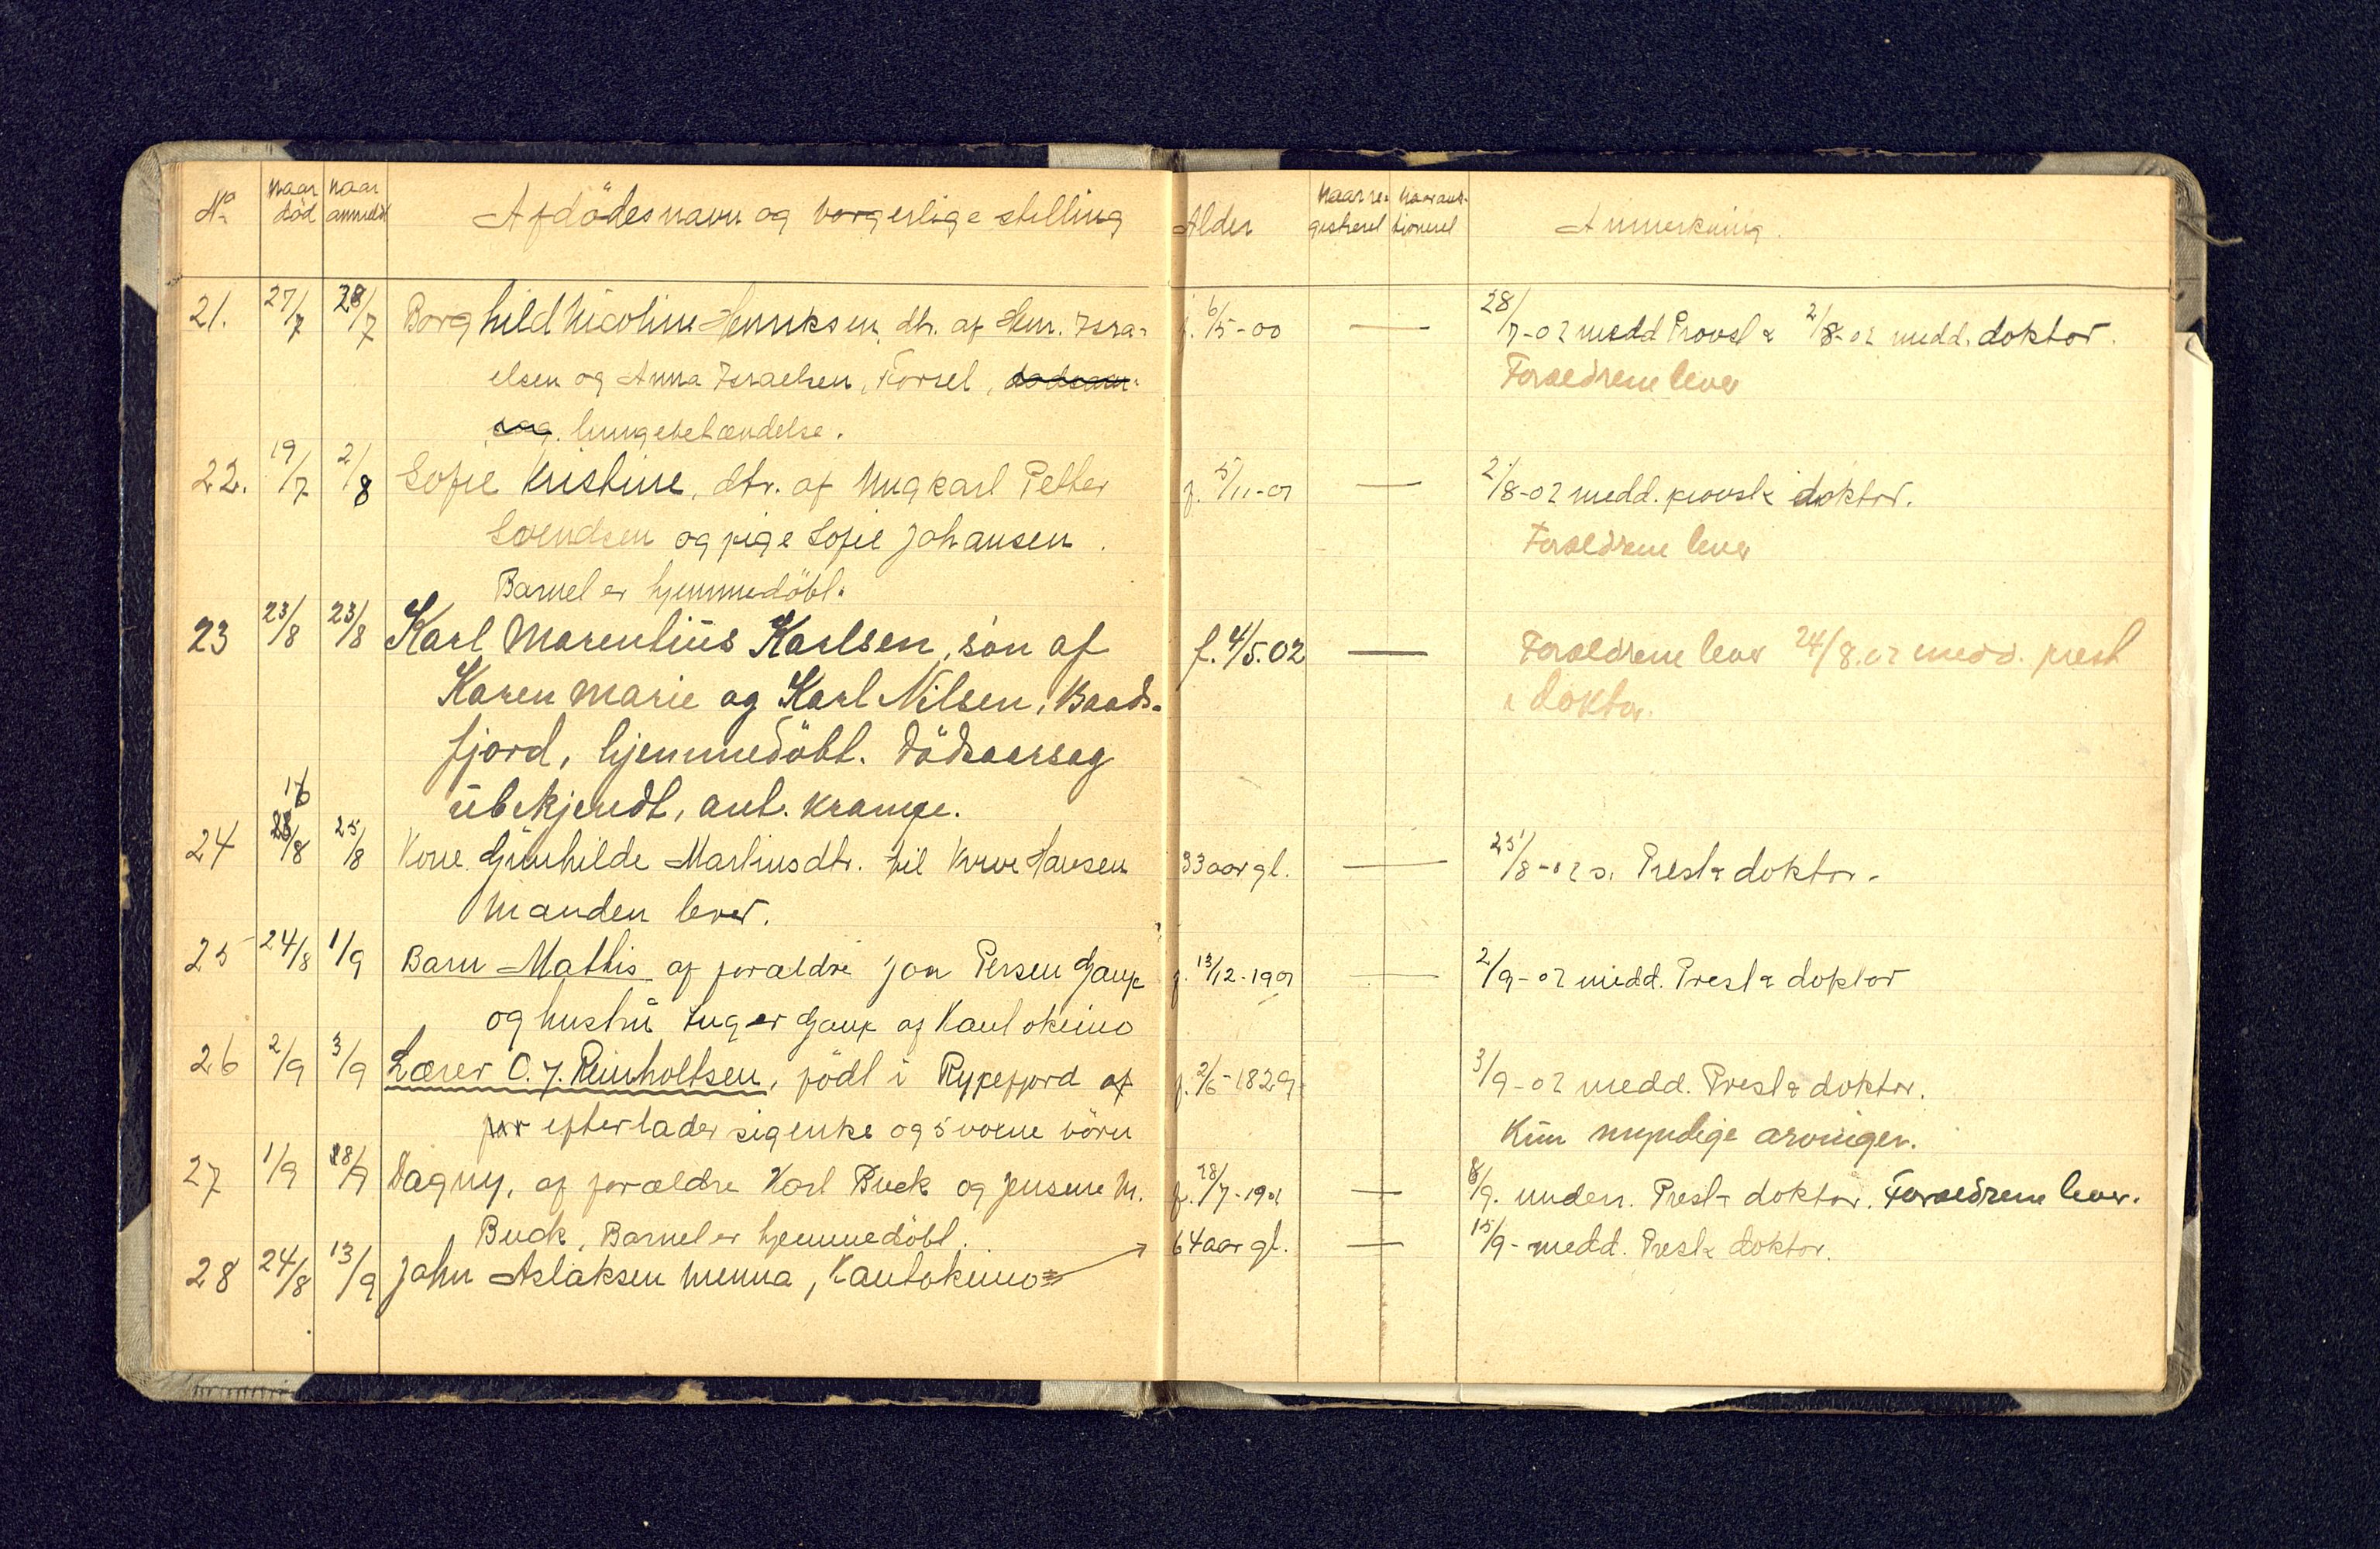 No naar död naar anmeldt Afdödes navn og borgerlige stilling Alder Naar re- gistreret Naar auk- tioneret Anmerkning.
21. 27/7 28/7 Borghild Nicoline Henriksen, dtr. af Henr. Isra- f. 6/5-00 — 28/7-02 medd Provst & 2/8-02 medd. doktor.
elsen og Anna Israelsen, Korsel, dødsaar- Foraeldrene lever
sag. lungebetændelse.
22. 19/7 2/8 Sofie Kristine, dtr. af Ungkarl Petter f. 5/11-01 — 2/8-02 medd. provst & doktor.
Svendsen og pige Sofie Johansen. Foraeldrene lever
Barnet er hjemmedöbt.
23 23/8 23/8 Karl Marentius Karlsen, sön af f. 4/5.02 — Foraeldrene lever 24/8.02 medd. prest
Karen Marie og Karl Nilsen, Baads- & doktor.
fjord, hjemmedöbt. Dödsaarsag
ubekjendt, ant. krampe.
24 16 /8 25/8 Kone Gunhilde Martinsdtr. til Hansen 33 aar gl. — 25/8-02 s. Prest & doktor.
Manden lever.
25 24/8 1/9 Barn Mathis af forældre Jon Persen Gaup f. 13/12-1901 — 2/9-02 medd. Prest & doktor
og hustru Inger Gaup af Kautokeino
26 2/9 3/9 Lærer O. J. Reinholtsen, födt i Rypefjord af f. 2/6-1829 3/9-02 medd. Prest & doktor.
for efterlader sig enke og 5 voxne börn Kun myndige arvinger.
27 1/9 8/9 Dagny, af forældre Karl Buck og Jensine M. f. 28/7-1902 — 8/9. underr. Prest & doktor. Foraeldrene lever.
Buck, Barnet er hjemmedöbt.
28 24/8 13/9 John Aslaksen Menna, Kautokeino 64 aar gl. — 15/9- medd. Prest & doktor.